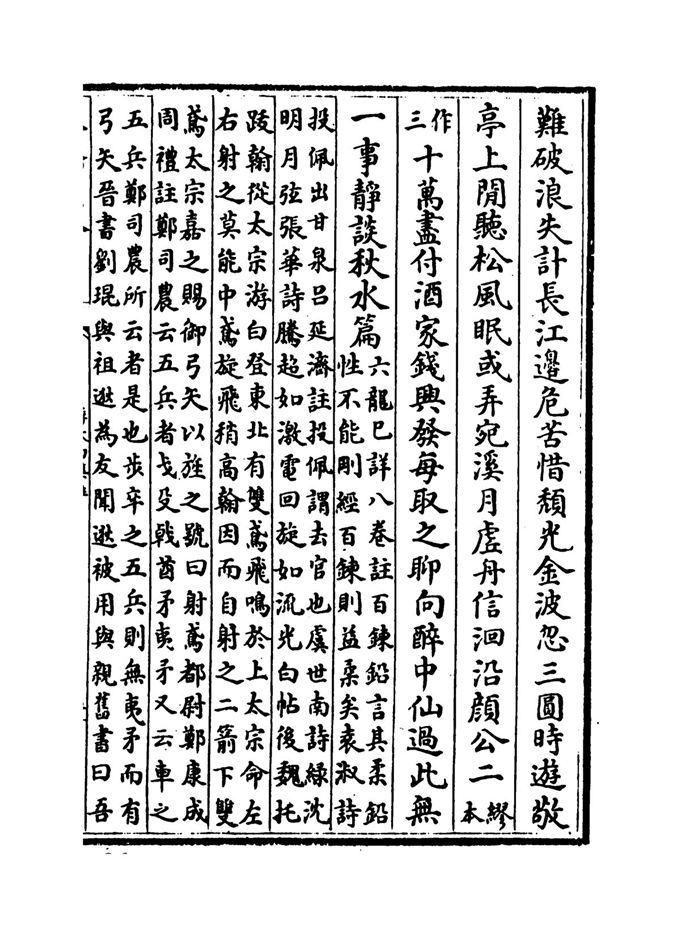 難破浪失計長江邊危苦惜頹光金波忽三圓時遊敬
亭上閒聽松風眠或弄宛溪月虛舟信洄沿顔公二繆本
作三十萬盡付酒家錢興發每取之聊向醉中仙過此無
一事靜談秋水篇六龍已詳八卷註百鍊鉛言其柔鉛
性不能剛經百鍊則益柔矣袁淑詩
投佩出甘泉呂延濟註投佩謂去官也虞世南詩綠沈
明月弦張華詩騰超如激電回旋如流光白帖後魏托
跋翰從太宗游白登東北有雙鳶飛鳴於上太宗命左
右射之莫能中鳶旋飛稍高翰因而自射之二箭下雙
鳶太宗嘉之賜御弓矢以旌之號曰射鳶都尉鄭康成
周禮註鄭司農云五兵者戈殳戟酋矛夷矛又云車之
五兵鄭司農所云者是也步卒之五兵則無夷矛而有
弓矢晉書劉琨與祖逖為友聞逖被用與親舊書曰吾